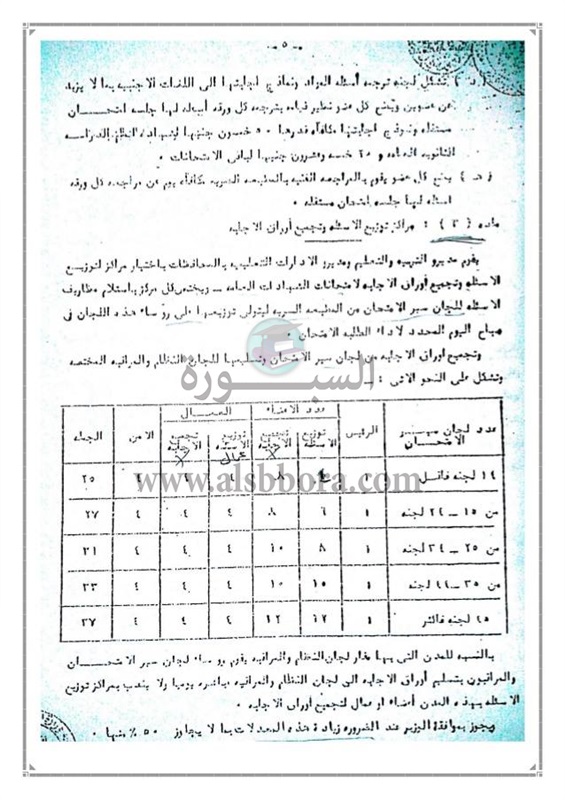 ـ ٥ ـ
( د ) تشكل لجنه ترجمه أسئله المواد ونماذج اجابتها الى اللغات الاجنبيه بما لا يزيد
عن عضوين ويمنح كل عضو نظير قيامه بترجمه كل ورقه أسئله لها جلسه امتحـــان
مستقله ونموذج اجابتها مكافأه قدرها ٥٠ خمسون جنيها لشهاده اتمام الدراسه
الثانويه العامه و ٢٥ خمسه وعشرون جنيها لباقى الامتحانات ٠
( هـ ) يمنح كل عضو يقوم بالمراجعه الفنيه بالمطبعه السريه مكافأه يوم عن مراجعه كل ورقه
اسئله لها جلسه امتحان مستقله ٠
ماده ( ٣ ) : مراكز توزيع الاسئله وتجميع أوراق الاجابه
يقوم مديرو التربيه والتعليم ومديرو الادارات التعليميه بالمحافظات باختيار مراكز لتوزيــع
الاسئله وتجميع أوراق الاجابه لامتحانات الشهادات العامه ــ ويختص كل مركز باستلام مظاريف
الاسئله للجان سير الامتحان من المطبعه السريه ليتولى توزيعها على رؤساء هذه اللجان فى
صباح اليوم المحدد لاداء الطلبه الامتحان ٠
وتجميع اوراق الاجابه من لجان سير الامتحان وتسليمها للجان النظام والمراقبه المختصه
وتشكل على النحو الاتى :ــ
السبورة
www.alsbbora.com
عدد لجان سيــر الامتحــان | الرئيس | عدد الاعضاء | العمــــال | الامن | الجمله
توزيع الاسئله | تجميع الاجابه | توزيع الاسئله | تجميع الاجابه
١٤ لجنه فاقل | ٨ | ٤ | ٢٥
من ١٥ ــ ٢٤ لجنه | ١ | ٦ | ٨ | ٤ | ٤ | ٤ | ٢٧
من ٢٥ ــ ٣٤ لجنه | ١ | ٨ | ١٠ | ٤ | ٤ | ٤ | ٣١
من ٣٥ ــ ٤٤ لجنه | ١ | ١٠ | ٤ | ٤ | ٤ | ٣٣
٤٥ لجنه فاكثر | ١ | ١٢ | ١٢ | ٤ | ٤ | ٤ | ٣٧
بالنسبه للمدن التى بها مقار لجان النظام والمراقبه يقوم رؤساء لجان سير الامتحــــان
والمراقبون بتسليم أوراق الاجابه الى لجان النظام والمراقبه مباشره يوميا ولا يندب بمراكز توزيع
الاسئله بهذه المدن أعضاء او عمال لتجميع أوراق الاجابه ٠
ويجوز بموافقة الوزير عند الضروره زيادة هذه المعدلات بما لا يجاوز ٥٠ ٪ منها ٠